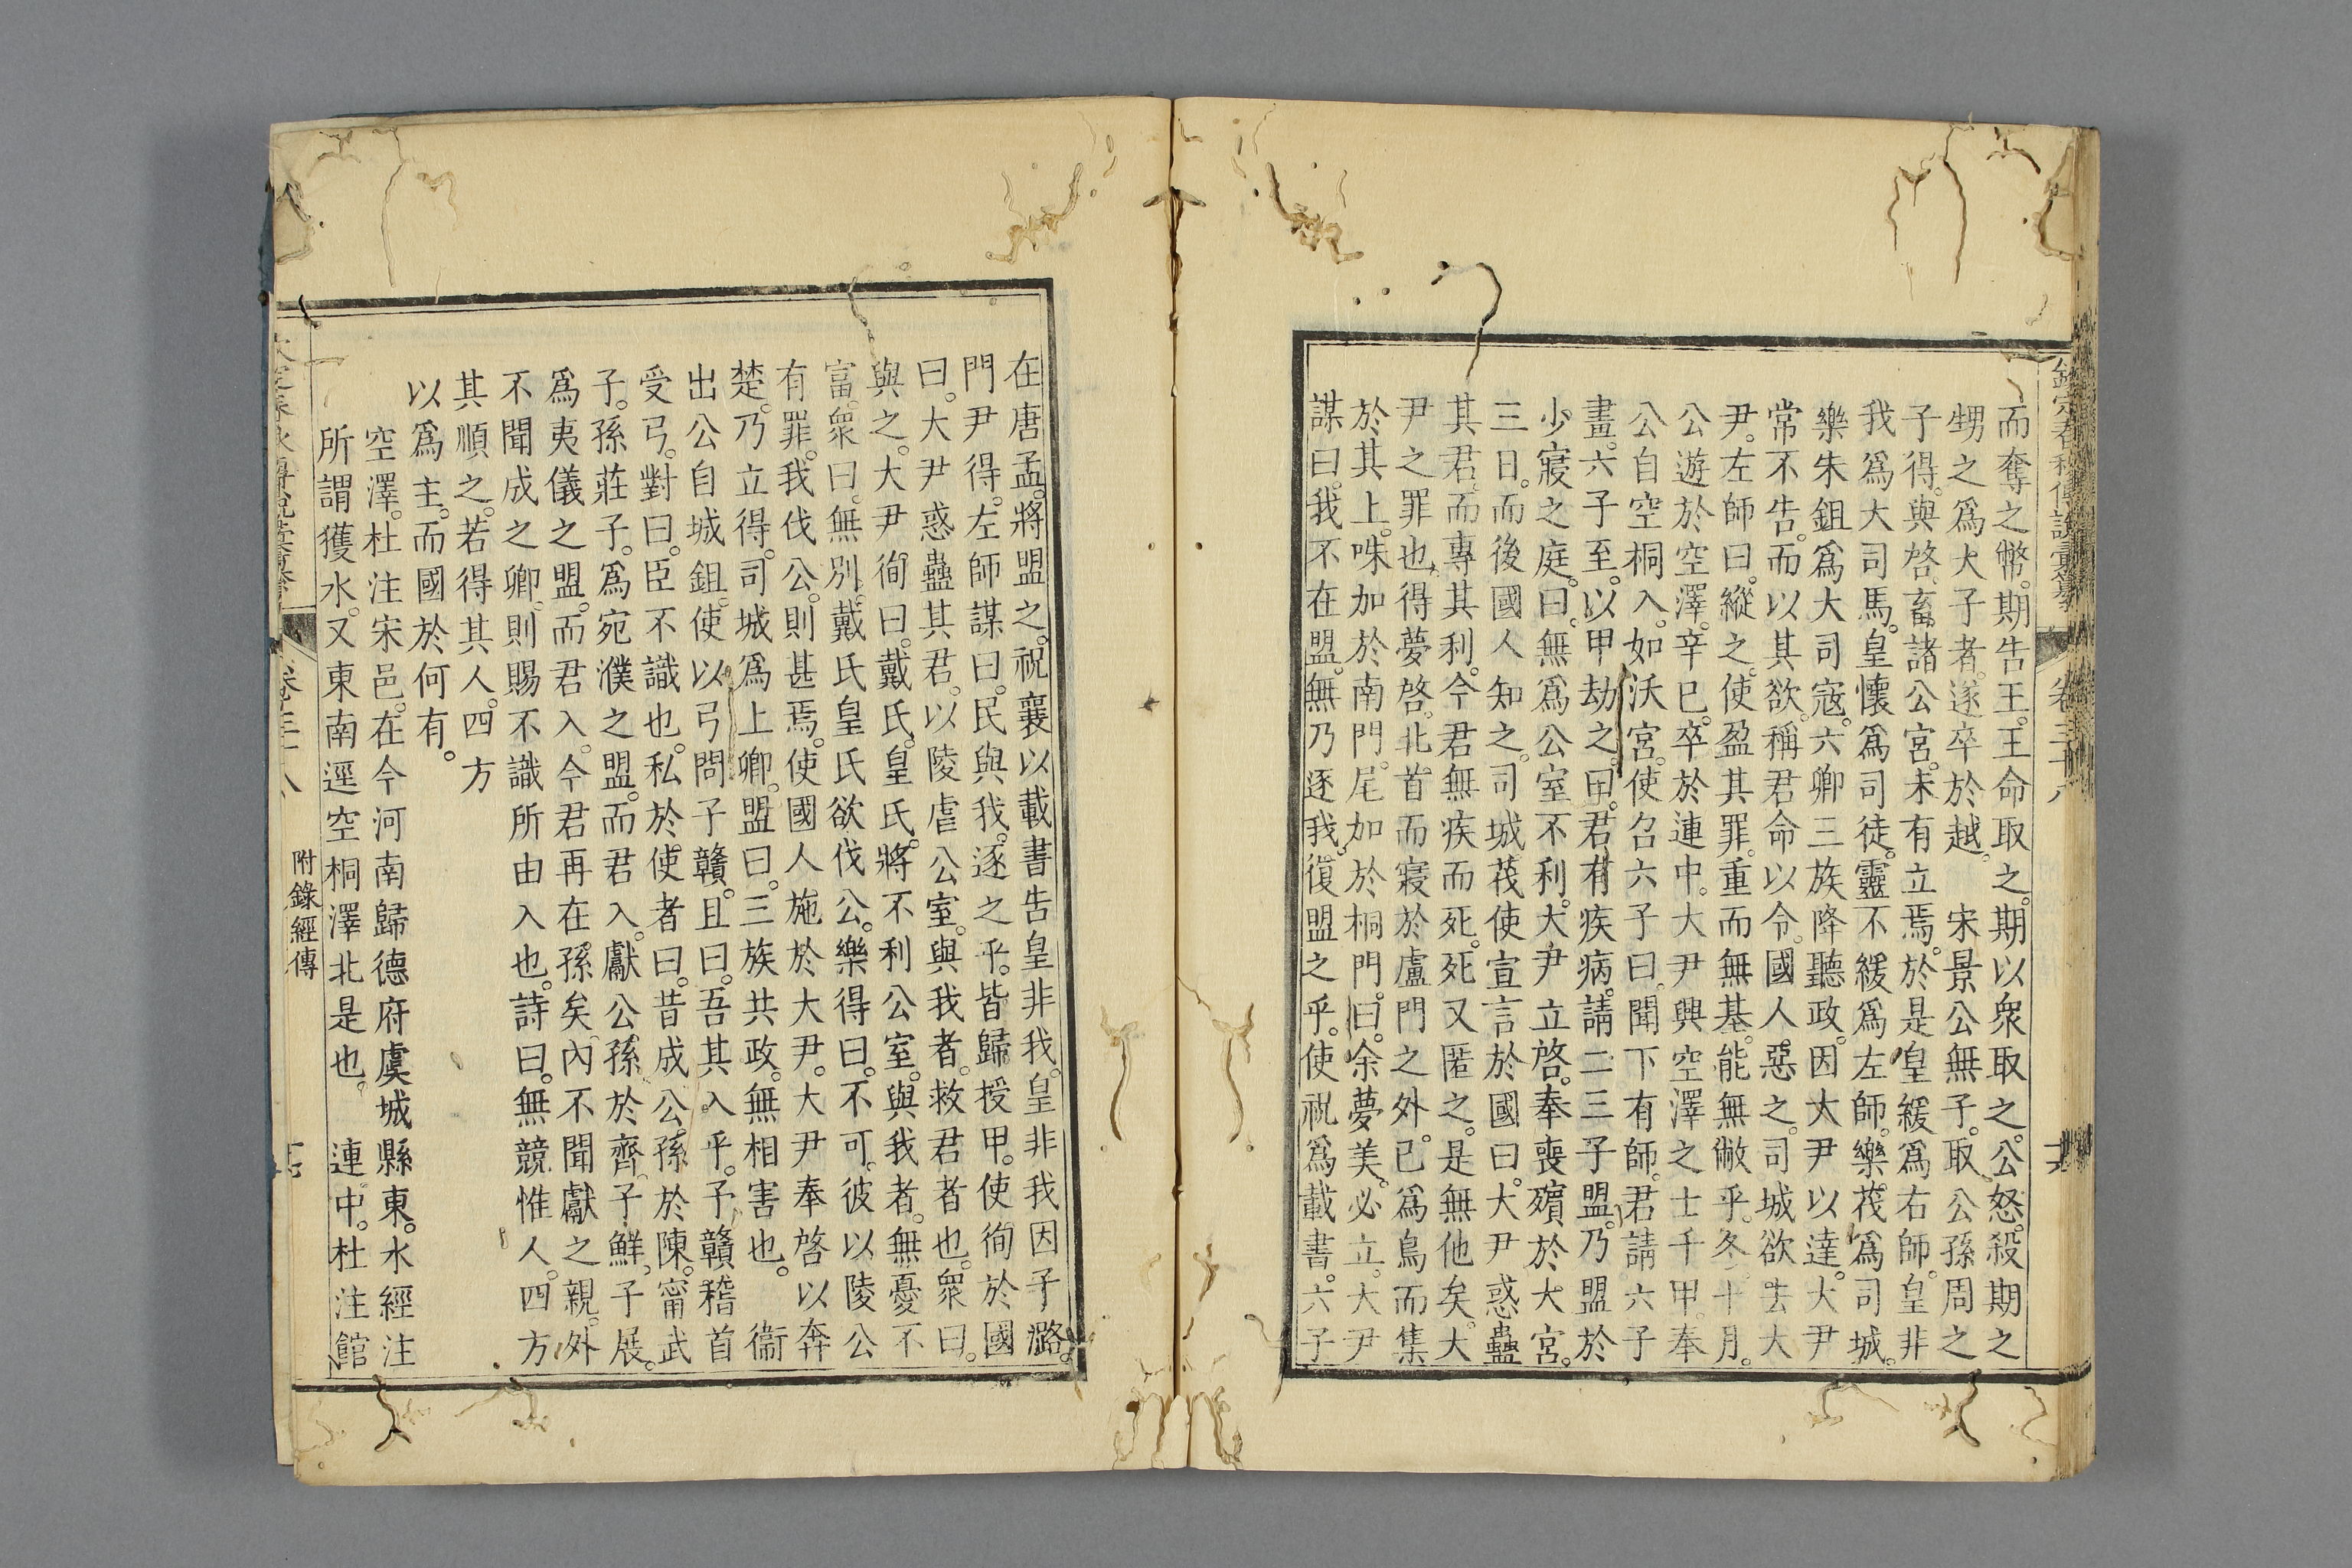 欽定春秋傳說彙纂 卷三十八
而奪之幣。期告王。王命取之。期以衆取之。公怒。殺期之
甥之爲大子者。遂卒於越。 宋景公無子。取公孫周之
子得。與啓。畜諸公宮。未有立焉。於是皇緩爲右師。皇非
我爲大司馬。皇懷爲司徒。靈不緩爲左師。樂茷爲司城。
樂朱鉏爲大司寇。六卿三族降聽政。因大尹以達。大尹
常不告。而以其欲。稱君命以令。國人惡之。司城欲去大
尹。左師曰。縱之。使盈其罪。重而無基。能無敝乎。冬。十月。
公遊於空澤。辛巳。卒於連中。大尹興空澤之士千甲。奉
公自空桐入。如沃宮。使召六子曰。聞下有師。君請六子
畫。六子至。以甲劫之。曰。君有疾病。請二三子盟。乃盟於
少寢之庭。曰。無爲公室不利。大尹立啓。奉喪殯於大宮。
三日。而後國人知之。司城茷使宣言於國曰。大尹惑蠱
其君。而專其利。今君無疾而死。死又匿之。是無他矣。大
尹之罪也。得夢啓。北首而寢於盧門之外。已爲鳥而集
於其上。咮加於南門。尾加於桐門。曰。余夢美。必立。大尹
謀曰。我不在盟。無乃逐我。復盟之乎。使祝爲載書。六子
在唐孟。將盟之。祝襄以載書告皇非我。皇非我因子潞。
門尹得。左師謀曰。民與我。逐之乎。皆歸授甲。使徇於國
曰。大尹惑蠱其君。以陵虐公室。與我者。救君者也。衆曰。
與之。大尹徇曰。戴氏。皇氏。將不利公室。與我者。無憂不
富。衆曰。無別。戴氏皇氏欲伐公。樂得曰。不可。彼以陵公
有罪。我伐公。則甚焉。使國人施於大尹。大尹奉啓以奔
楚。乃立得。司城爲上卿。盟曰。三族共政。無相害也。 衞
出公自城鉏。使以弓問子贛。且曰。吾其入乎。子贛稽首
受弓。對曰。臣不識也。私於使者曰。昔成公。孫於陳。甯武
子。孫莊子。爲宛濮之盟。而君入。獻公。孫於齊。子鮮。子展。
爲夷儀之盟。而君入。今君再在孫矣。內不聞獻之親。外
不聞成之卿。則賜不識所由入也。詩曰。無競惟人。四方
其順之。若得其人。四方
以爲主。而國於何有。
空澤。杜注宋邑。在今河南歸德府虞城縣東。水經注
所謂獲水。又東南逕空桐澤北是也。 連中。杜注館
附錄經傳